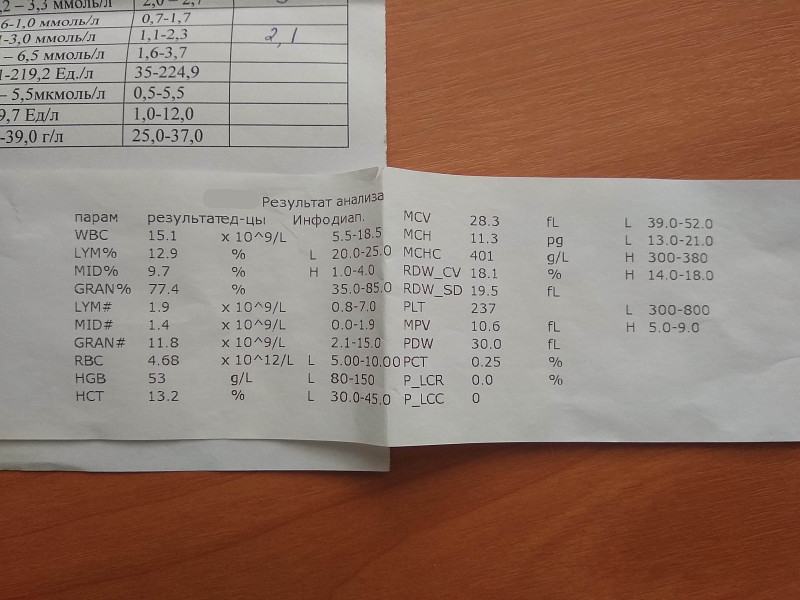 ,2 – 3,3 ммоль/л 2,0 – 2,7
6-1,0 ммоль/л 0,7-1,7
1-3,0 ммоль/л 1,1-2,3 2,1
– 6,5 ммоль/л 1,6-3,7
1-219,2 Ед./л 35-224,9
– 5,5мкмоль/л 0,5-5,5
9,7 Ед/л 1,0-12,0
-39,0 г/л 25,0-37,0
Результат анализа
парам результатед-цы Инфодиап.
WBC 15.1 x 10^9/L 5.5-18.5
LYM% 12.9 % L 20.0-25.0
MID% 9.7 % H 1.0-4.0
GRAN% 77.4 % 35.0-85.0
LYM# 1.9 x 10^9/L 0.8-7.0
MID# 1.4 x 10^9/L 0.0-1.9
GRAN# 11.8 x 10^9/L 2.1-15.0
RBC 4.68 x 10^12/L L 5.00-10.00
HGB 53 g/L L 80-150
HCT 13.2 % L 30.0-45.0
MCV 28.3 fL L 39.0-52.0
MCH 11.3 pg L 13.0-21.0
MCHC 401 g/L H 300-380
RDW_CV 18.1 % H 14.0-18.0
RDW_SD 19.5 fL
PLT 237 L 300-800
MPV 10.6 fL H 5.0-9.0
PDW 30.0 fL
PCT 0.25 %
P_LCR 0.0 %
P_LCC 0